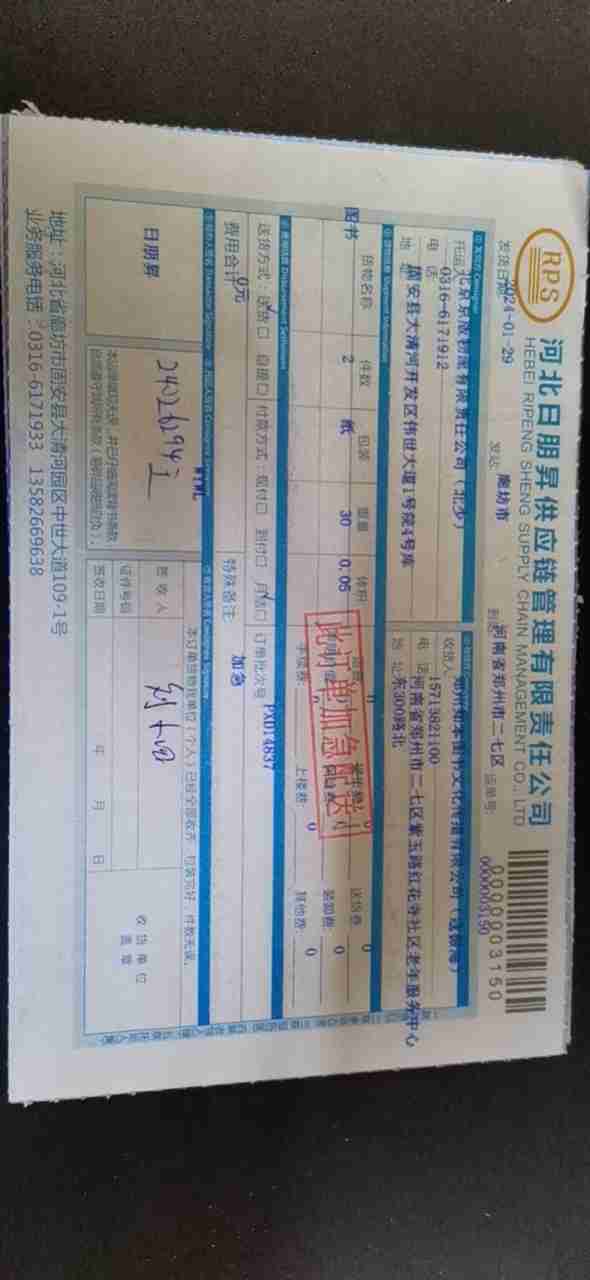 RPS
河北日朋昇供应链管理有限责任公司
HEBEI RIPENG SHENG SUPPLY CHAIN MANAGEMENT CO., LTD
0000003150
发货日期 2024-01-29 发站: 廊坊市 到达: 河南省郑州市二七区 运单号: 0000003150
托运 北京京版初配有限责任公司（北少）
电话 0316-6171912
地 固安县大清河开发区伟世大道1号院4号库
收货人
电话 15713821100
地址 河南省郑州市二七区紫玉路红花寺社区老年服务中心
东300路北
货物名称 件数 包装 重量 体积 送货费 0
图书 2 纸 30 0.06 装卸费: 0
手续费: 上楼费: 0 其他费: 0
此订单加急配送
送货方式: 送货 自提 付款方式: 现付 到付 月结 订单批次号 PXD14837
费用合计 0元 特殊备注 加急
日朋昇
本订单货物我单位（个人）已经全部收齐，包装完好，件数无误。
签收人
证件号码
签收日期 年 月 日
收货单位
盖章
地址：河北省廊坊市固安县大清河园区中世大道109-1号
业务服务电话：0316-6171933 13582669638